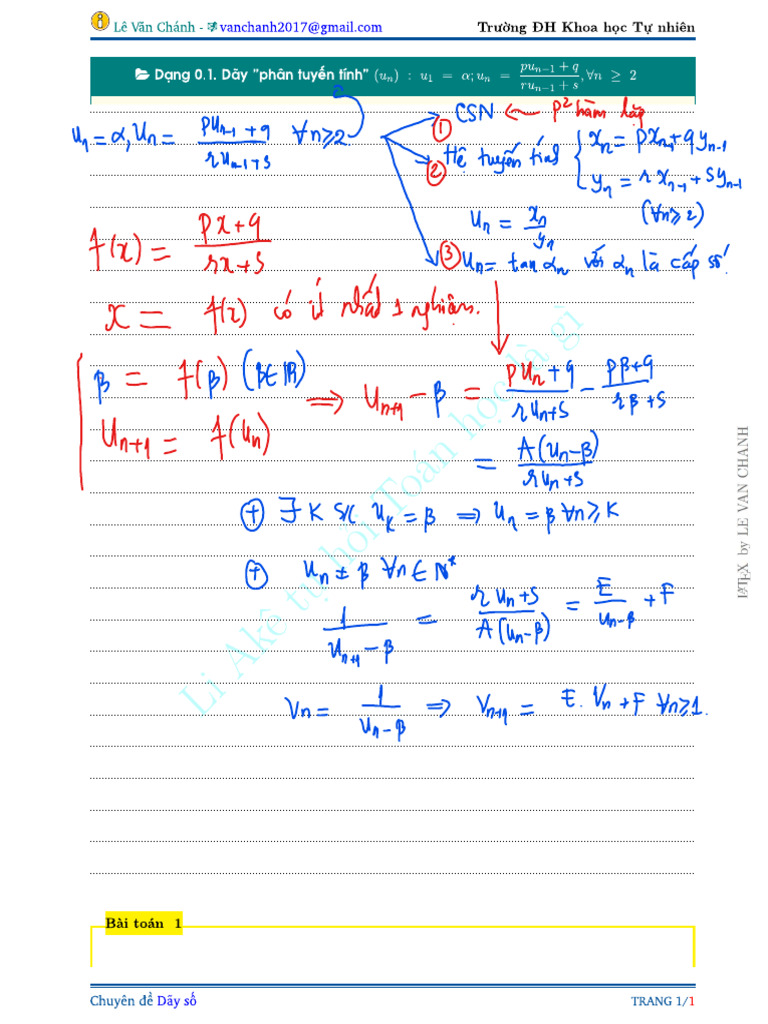 Lê Văn Chánh - vanchanh2017@gmail.com Trường ĐH Khoa học Tự nhiên
Dạng 0.1. Dãy "phân tuyến tính" (uₙ) : u₁ = α; uₙ = (puₙ₋₁ + q)/(ruₙ₋₁ + s), ∀n ≥ 2
u₁ = α, Uₙ = (pUₙ₋₁ + q)/(rUₙ₋₁ + s) ∀n ≥ 2
① CSN ← P² hàm lặp
② Hệ tuyến tính { xₙ = pxₙ₋₁ + qyₙ₋₁
yₙ = rxₙ₋₁ + syₙ₋₁
(∀n ≥ 2)
Uₙ = xₙ/yₙ
③ Uₙ = tan αₙ với αₙ là cấp số.
f(x) = (px + q)/(rx + s)
x = f(x) có ít nhất 1 nghiệm.
β = f(β) (β ∈ ℝ)
Uₙ₊₁ = f(uₙ)
⇒ Uₙ₊₁ - β = (pUₙ + q)/(rUₙ + s) - (pβ + q)/(rβ + s)
= A(uₙ - β)/(rUₙ + s)
⊕ ∃ K s/c U_K = β ⇒ Uₙ = β ∀n ≥ K
⊕ Uₙ ≠ β ∀n ∈ N*
1/(Uₙ₊₁ - β) = (rUₙ + s)/(A(uₙ - β)) = E/(uₙ - β) + F
Vₙ = 1/(Uₙ - β) ⇒ Vₙ₊₁ = E.Vₙ + F ∀n ≥ 1.
Li Akê tự hỏi Toán học là gì
LATEX by LE VAN CHANH
Bài toán 1
Chuyên đề Dãy số TRANG 1/1